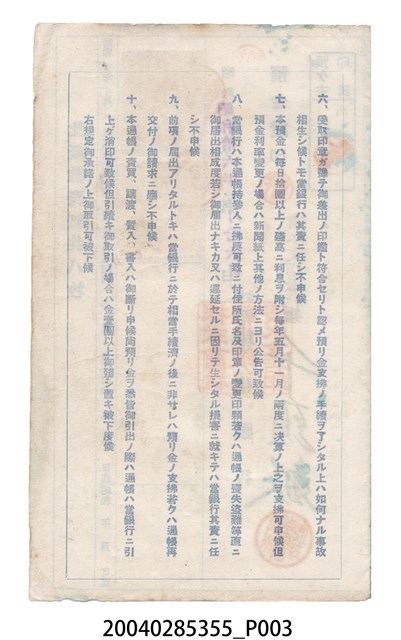 六、受取印章ガ予テ御差出ノ印鑑ト符合セリト認メ預リ金支拂ノ手續ヲ了シタル上ハ如何ナル事故
相生シ候トモ當銀行ハ其責ニ任シ不申候
七、本預金ハ毎日拾圓以上ノ殘高ニ利息ヲ附シ毎年五月十一月ノ兩度ニ決算ノ上之ヲ支拂可申候但
預金利率變更ノ場合ハ新聞紙上其他ノ方法ニヨリ公告可致候
八、當銀行ハ本通帳持參人ニ拂戻可致ニ付住所氏名及印章ノ變更印類若クハ通帳ノ喪失盜難等直ニ
御届出相成度若シ御届出ナキカ又ハ遅延セルニ因リテ生シタル損害ニ就キテハ當銀行其責ニ任
シ不申候
九、前項ノ届出アリタルトキハ當銀行ニ於テ相當手續濟ノ後ニ非サレハ預リ金ノ支拂若クハ通帳再
交付ノ御請求ニ應シ不申候
十、本通帳ノ賣買、讓渡、質入、書入ハ御斷リ申候尚預リ金ヲ悉皆御引出ノ際ハ通帳ハ當銀行ニ引
上ケ消印可致候但引續キ御取引ノ場合ハ金壹圓以上御殘シ置キ被下度候
右規定御承諾ノ上御取引可被下候
20040285355_P003